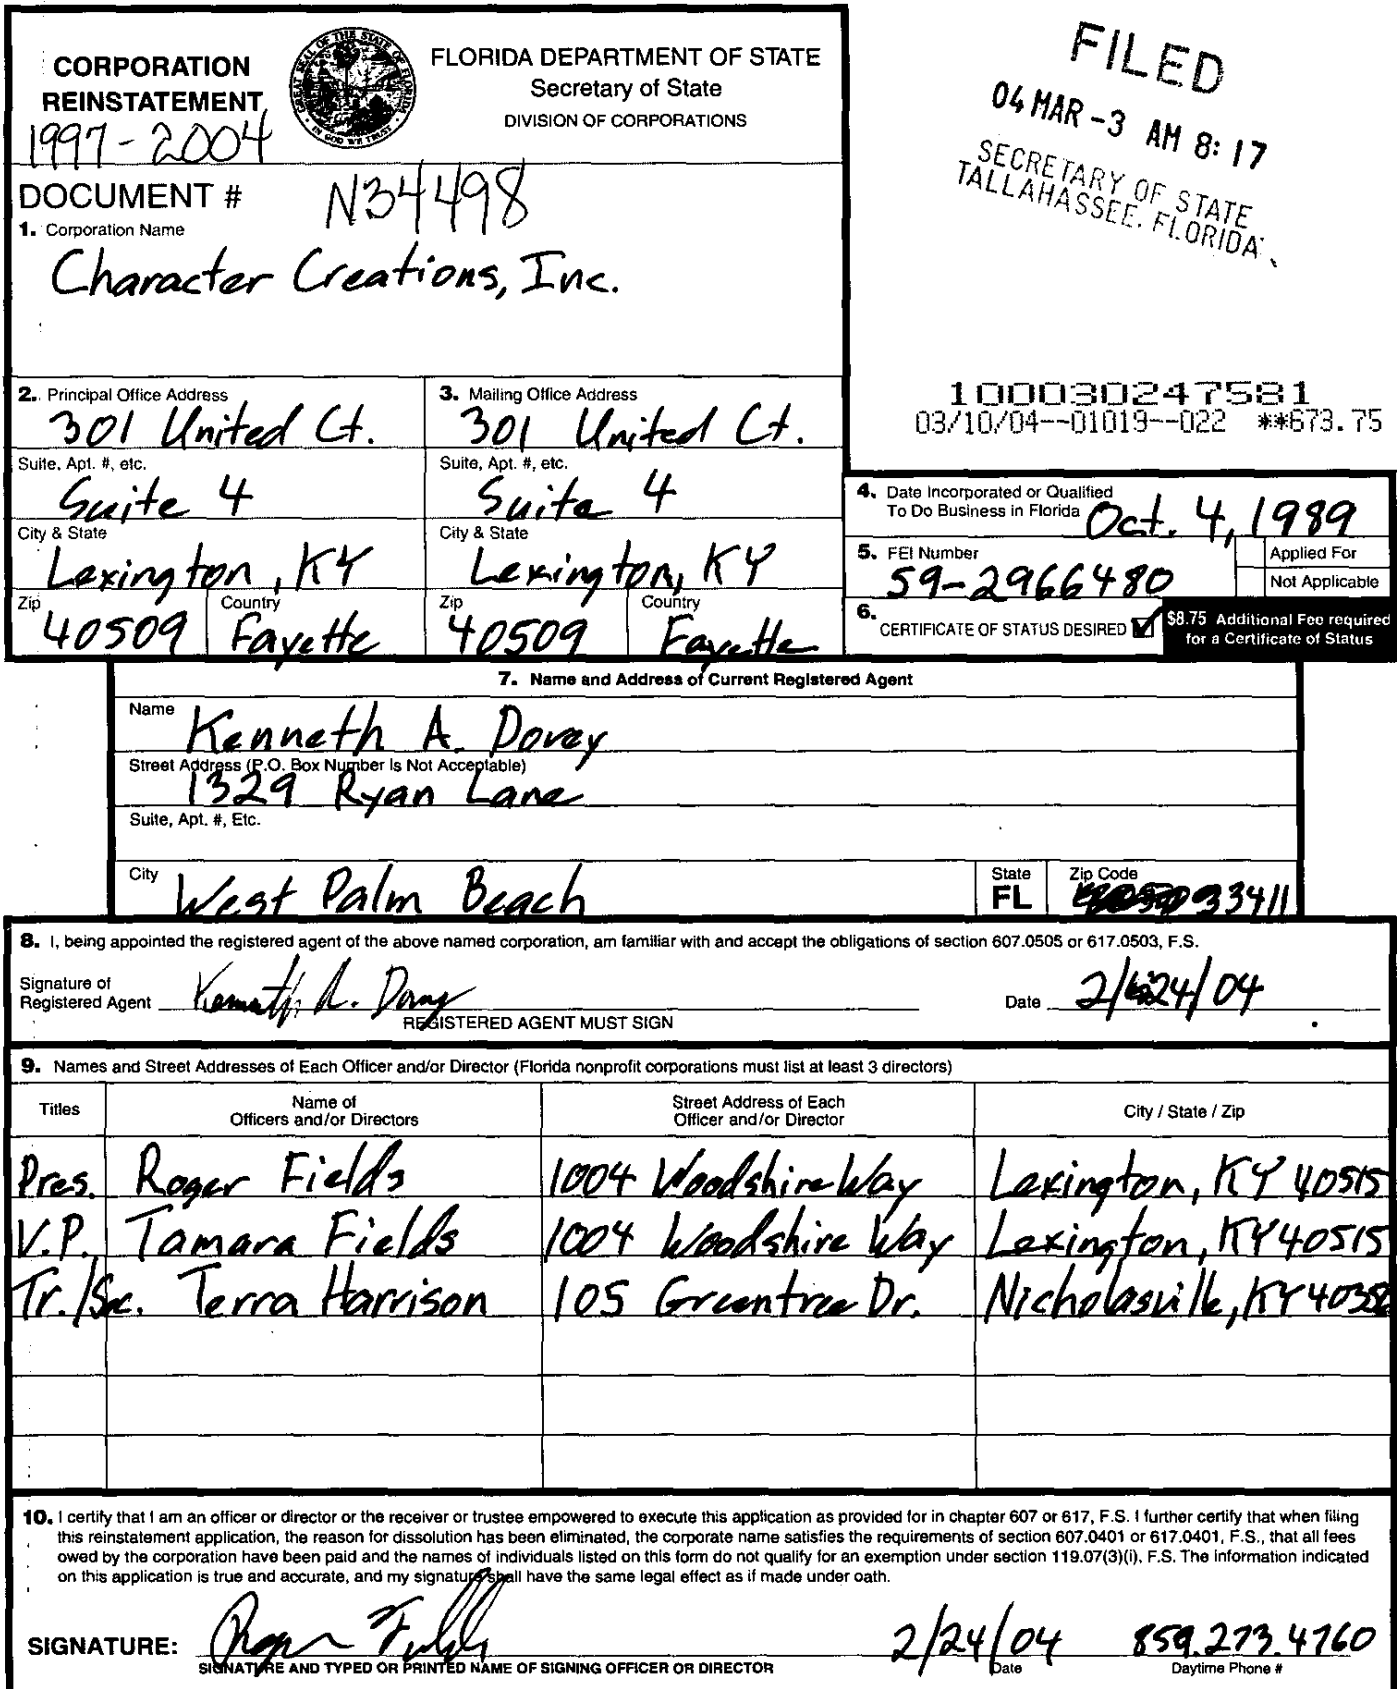 CORPORATION
REINSTATEMENT
1997-2004
GREAT SEAL OF THE STATE OF FLORIDA
IN GOD WE TRUST
FLORIDA DEPARTMENT OF STATE
Secretary of State
DIVISION OF CORPORATIONS
FILED
04 MAR -3 AM 8:17
SECRETARY OF STATE
TALLAHASSEE, FLORIDA
DOCUMENT # N34498
1. Corporation Name
Character Creations, Inc.
100030247581
03/10/04--01019--022 **673.75
2. Principal Office Address
301 United Ct.
Suite, Apt. #, etc.
Suite 4
City & State
Lexington, KY
Zip Country
40509 Fayette
3. Mailing Office Address
301 United Ct.
Suite, Apt. #, etc.
Suite 4
City & State
Lexington, KY
Zip Country
40509 Fayette
4. Date Incorporated or Qualified
To Do Business in Florida Oct. 4, 1989
5. FEI Number
59-2966480
Applied For
Not Applicable
6. CERTIFICATE OF STATUS DESIRED
$8.75 Additional Fee required
for a Certificate of Status
7. Name and Address of Current Registered Agent
Name Kenneth A. Dovey
Street Address (P.O. Box Number Is Not Acceptable)
1329 Ryan Lane
Suite, Apt. #, Etc.
City West Palm Beach
State
FL
Zip Code
33411
8. I, being appointed the registered agent of the above named corporation, am familiar with and accept the obligations of section 607.0505 or 617.0503, F.S.
Signature of
Registered Agent Kenneth A. Dovey
Date 2/24/04
REGISTERED AGENT MUST SIGN
9. Names and Street Addresses of Each Officer and/or Director (Florida nonprofit corporations must list at least 3 directors)
Titles
Name of
Officers and/or Directors
Street Address of Each
Officer and/or Director
City / State / Zip
Pres. Roger Fields 1004 Woodshire Way Lexington, KY 40515
V.P. Tamara Fields 1004 Woodshire Way Lexington, KY 40515
Tr./Sec. Terra Harrison 105 Greentree Dr. Nicholasville, KY 40356
10. I certify that I am an officer or director or the receiver or trustee empowered to execute this application as provided for in chapter 607 or 617, F.S. I further certify that when filing
this reinstatement application, the reason for dissolution has been eliminated, the corporate name satisfies the requirements of section 607.0401 or 617.0401, F.S., that all fees
owed by the corporation have been paid and the names of individuals listed on this form do not qualify for an exemption under section 119.07(3)(i), F.S. The information indicated
on this application is true and accurate, and my signature shall have the same legal effect as if made under oath.
SIGNATURE: Roger Fields 2/24/04 859.273.4760
SIGNATURE AND TYPED OR PRINTED NAME OF SIGNING OFFICER OR DIRECTOR
Date
Daytime Phone #